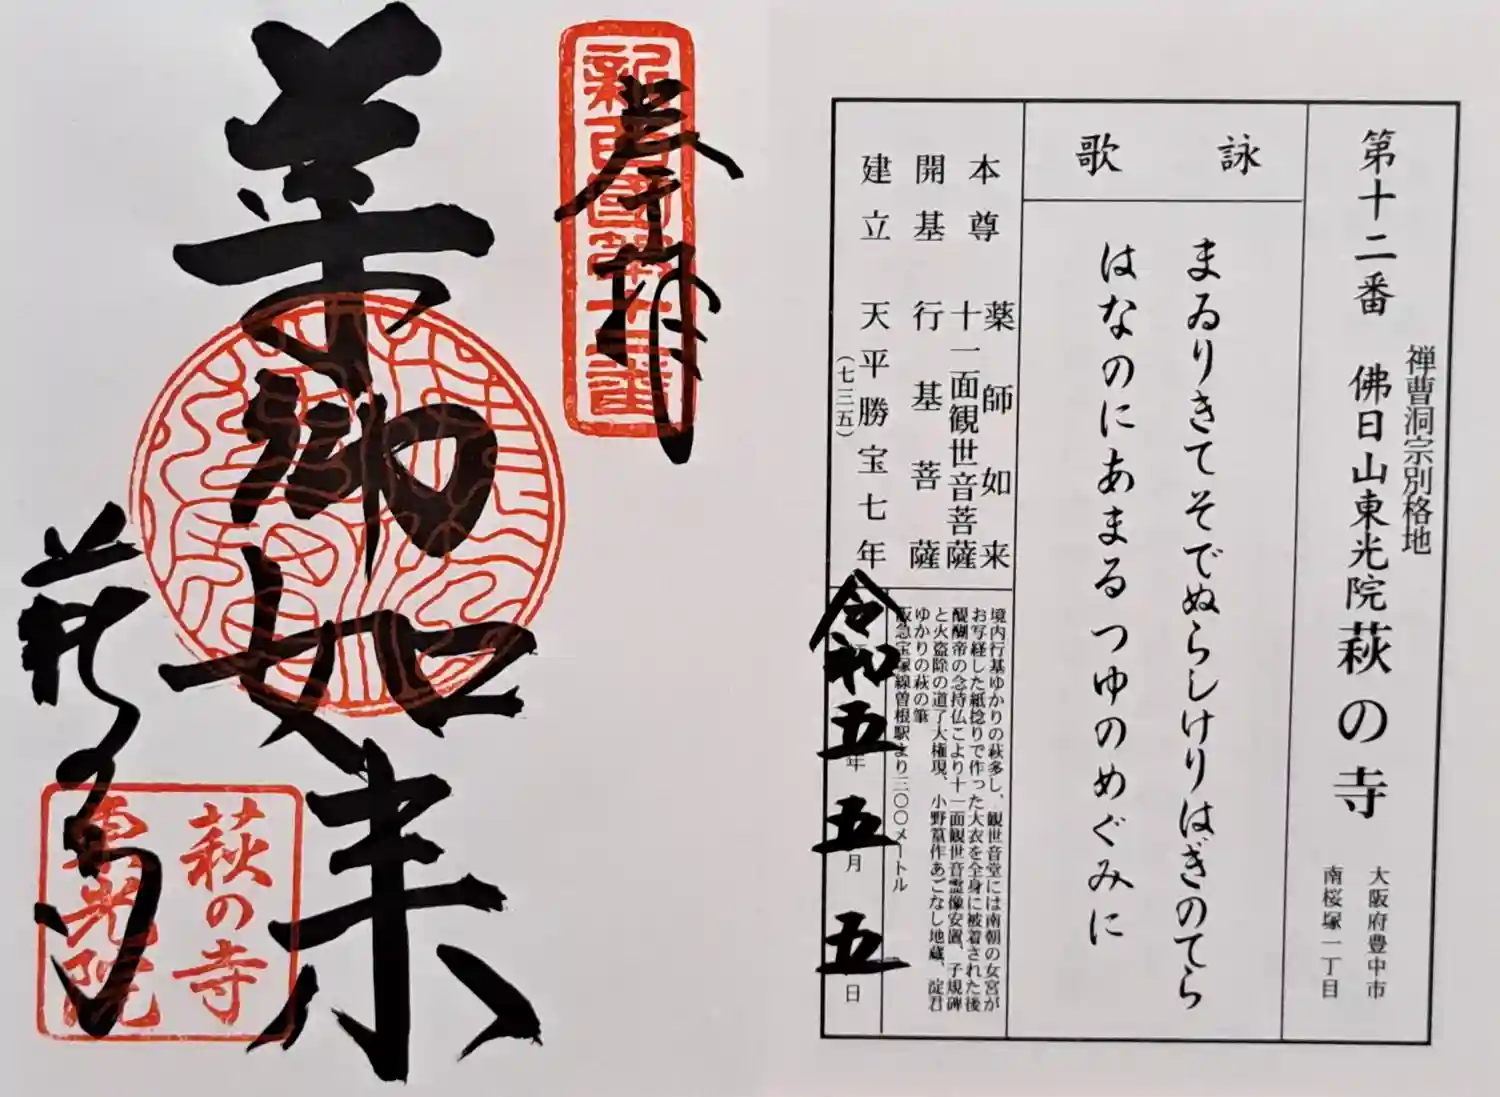 奉拝
新西國第十二番
薬師如来
萩の寺
萩の寺
東光院
第十二番 佛日山東光院萩の寺
禅曹洞宗別格地
大阪府豊中市
南桜塚一丁目
詠歌
まゐりきてそでぬらしけりはぎのてら
はなのにあまるつゆのめぐみに
本尊 薬師如来
十一面観世音菩薩
開基 行基菩薩
建立 天平勝宝七年
(七三五)
境内行基ゆかりの萩多し、観世音堂には南朝の女宮が
お写経した紙捻りで作った大衣を全身に被着された後
醍醐帝の念持仏こより十一面観世音霊像安置、子規碑
と火盗除の道了大権現、小野篁作あごなし地蔵、淀君
ゆかりの萩の筆
阪急宝塚線曽根駅より三〇〇メートル
令和五年五月五日